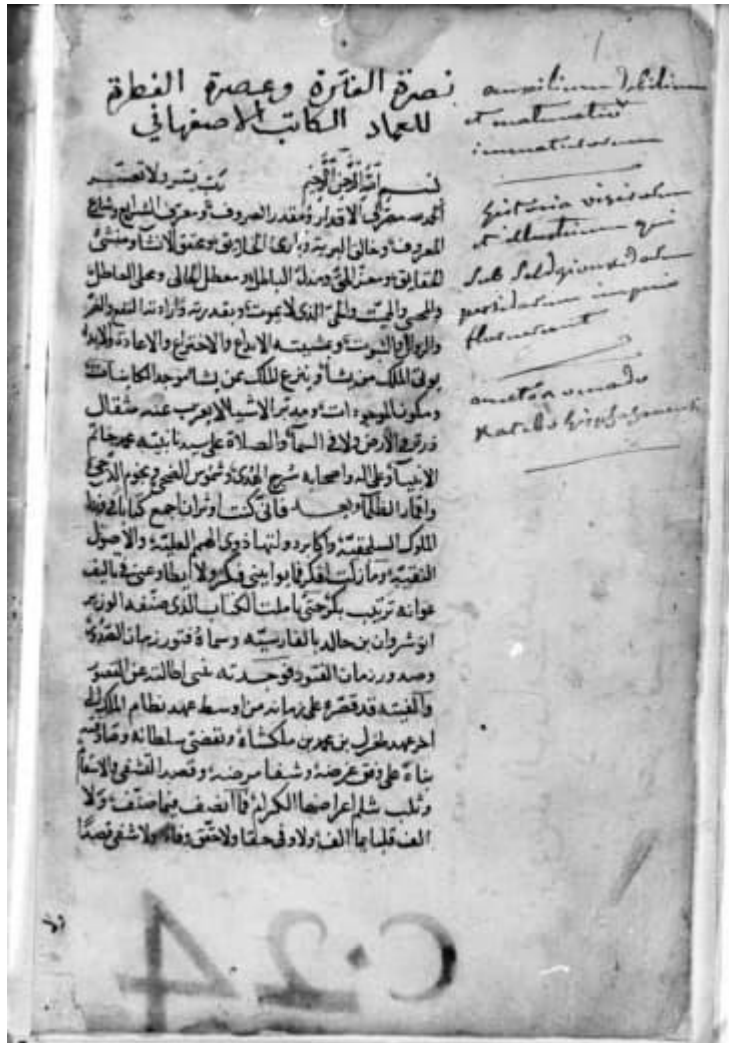 نصرة الفترة وعصرة الفطرة
للعماد الكاتب الاصفهاني
بسم الله الرحمن الرحيم رب يسر ولا تعسر
الحمد لله الاقدار ومقدر الصروف و الشرايع وشارع
المعروف وخالق البرية وبارئ ومحقق الانشا ومنشئ
الحقايق ومعز الحق ومذل الباطل ومعطل الحالي ومحلي العاطل
والمحيي والمميت والحي الذي لا يموت وبقدرته وارادته النفع والضر
والزوال والثبوت وبمشيته الابداع والاختراع والاعادة
يوتي الملك من يشا وينزع الملك ممن يشا موجد الكاينات
ومكون الموجودات ومدبر الاشيا لا يعزب عنه مثقال
ذرة في الارض ولا في السما والصلاة على سيدنا نبيه محمد خاتم
الانبيا وعلى اله واصحابه سرج الهدى وشموس الضحى ونجوم الدجى
واقمار الظلما وبعد فاني كنت اوثر ان اجمع كتابا في
الملوك السلجقية واكابر دولتها ذوي الهمم العلية والاصول
النقية وما زلت افكر فيما بيني فكر ولا ابطا وعني في تاليف
عوانه ترتيب بكر حتى تاملت الكتاب الذي صنفه الوزير
انوشروان بن خالد بالفارسية وسماه فتور زمان الصدور
وصدور زمان الفتور فوجدته غنى اطالته عن القصور
والفيته قد قصره على زمانه من اوسط عهد نظام الملك الى
اخر عهد طغرل بن محمد بن ملكشاه وتقضي سلطانه
بناه على وفق غرضه وشفا مرضه وقصد التشفي والانتقام
وثلب اعراضها الكرام فما انصف فيما صنف ولا
الف قلبا بما الف ولا وفى حقا ولا حقق وفا ولا شفى قصدا
1
auxilium debilium
et
immaturorum
historia virorum
et illustrium qui
sub
persidarum imperio
floruerunt
auctore omado
katebo
C·24